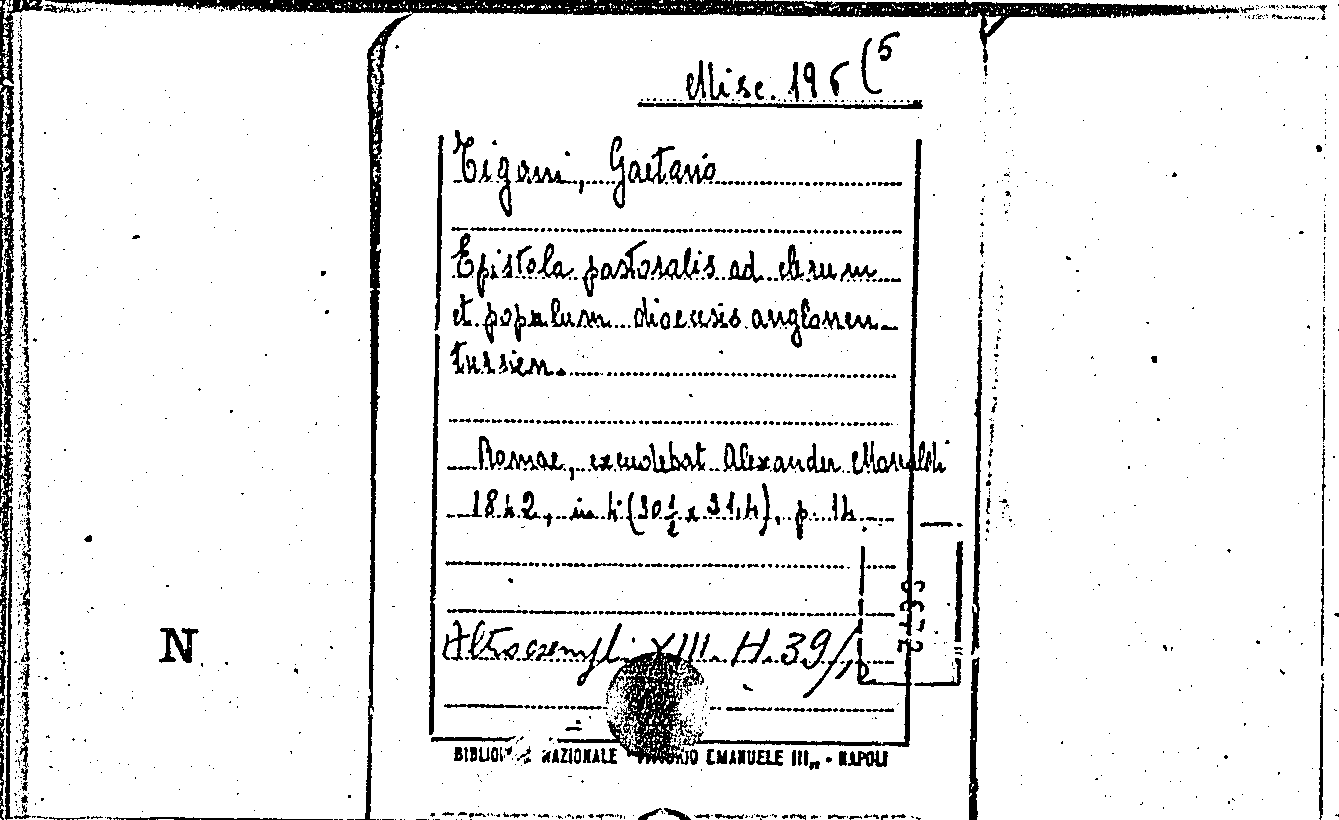 Misc. 196 (5
Tigani, Gaetano
Epistola pastoralis ad clerum
et populum dioecesis anglonen-
tursien.
Romae, excudebat Alexander Monaldi
1842, in 4° (30½ x 31,4), p. 14
Altro esempl. XIII. H. 39/
N
BIBLIOTECA NAZIONALE "VITTORIO EMANUELE III„ - NAPOLI